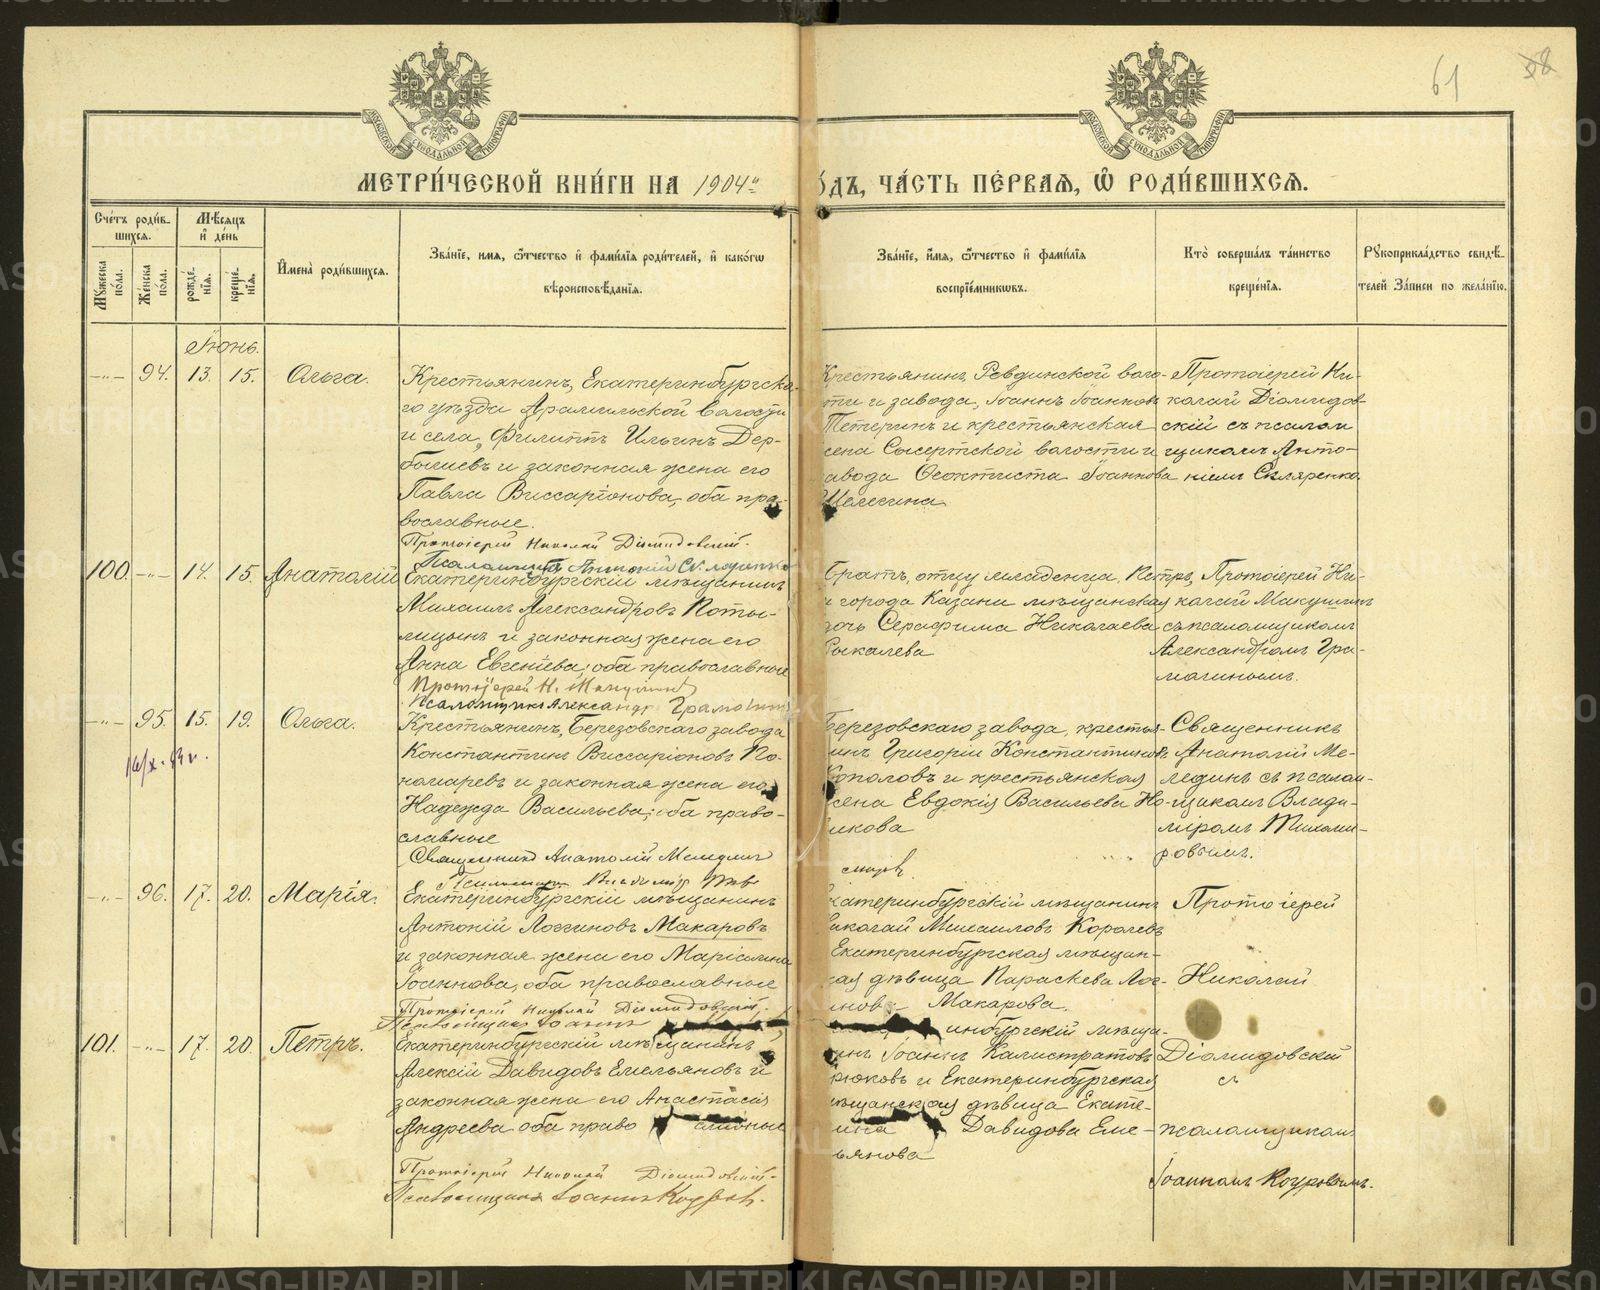 61
58
МЕТРИ́ЧЕСКОЙ КНИ́ГИ НА 1904
ОДЪ, ЧА́СТЬ ПЕ́РВАЯ, Ѿ РОДИ́ВШИХСЯ.
Сче́тъ роди́в-
шихся.
Мѣ́сяцъ
и де́нь
Му́жеска по́ла.
Же́нска по́ла.
рожде́нія.
креще́нія.
И́мена̀ роди́вшихся.
Зва́нїе, и́мя, ѻ҆́тчество и҆ фами́лїя роди́телей, и҆ како́гѡ
вѣроисповѣ́данїя.
Зва́нїе, и́мя, ѻ҆́тчество и҆ фами́лїя
воспрїе́мниковъ.
Кто̀ соверша́лъ та́инство
креще́нїя.
Рꙋкоприкла́дство свидѣ́-
телей За́писи по жела́нїю.
Іюнь.
94. 13. 15. Ольга.
Крестьянинъ, Екатеринбургска-
го уѣзда Арамильской волости
и села, Филиппъ Ильинъ Дер-
бышевъ и законная жена его
Павла Виссаріонова, оба пра-
вославные.
Протоіерей Николай Діомидовскій.
Псаломщикъ Антоній Скляренко
Крестьянинъ, Ревдинской воло-
сти и завода, Іоаннъ Іоанновъ
Тетеринъ и крестьянская
жена Сысертской волости и
завода Ѳеоктиста Іоаннова
Шелегина
Протоіерей Ни-
колай Діомидов-
скій съ псалом
щикомъ Анто-
ніемъ Скляренко.
100. 14. 15. Анатолій
Екатеринбургскій мѣщанинъ
Михаилъ Александровъ Поты-
лицынъ и законная жена его
Анна Евгеніева, оба православные
Протоіерей Н. Макушинъ
Псаломщикъ Александръ Грамотинъ
братъ, отцу младенца, Петръ,
и города Казани мѣщанская
дочь Серафима Николаева
Протоіерей Ни-
колай Макушинъ
съ псаломщикомъ
Александромъ Гра-
мотинымъ.
95. 15. 19. Ольга.
Крестьянинъ, Березовскаго завода
Константинъ Виссаріоновъ По-
номаревъ и законная жена его
Надежда Васильева, оба право-
славные
Священникъ Анатолій Меледин
Псаломщикъ Владимір Тихо
миров.
Березовскаго завода, крестья-
нинъ Григорій Константиновъ
и крестьянская
жена Евдокія Васильева Но-
викова
Священникъ
Анатолій Ме-
лединъ съ псалом-
щикомъ Влади-
міромъ Тихоми-
ровымъ.
96. 17. 20. Марія.
Екатеринбургскій мѣщанинъ
Антоній Логгиновъ Макаровъ
и законная жена его Маріамна
Іоаннова, оба православные
Протоіерей Николай Діомидовскій.
Псаломщикъ Іоаннъ
Екатеринбургскій мѣщанинъ
Николай Михаиловъ Королевъ
Екатеринбургская мѣщан-
ская дѣвица Параскева Лог-
гинова Макарова.
Протоіерей
Николай
101. 17. 20. Петръ.
Екатеринбургскій мѣщанинъ
Алексій Давидовъ Емельяновъ и
законная жена его Анастасія
Андреева оба право славные
Протоіерей Николай Діомидовскій.
Псаломщикъ Іоаннъ Коуровъ.
инбургскій мѣща-
нинъ Іоаннъ Калистратовъ
рюковъ и Екатеринбургская
мѣщанская дѣвица Екате-
рина Давидова Еме-
льянова
Діомидовскій
съ
псаломщикомъ
Іоанномъ Коуровымъ.
METRIKI.GASO-URAL.RU